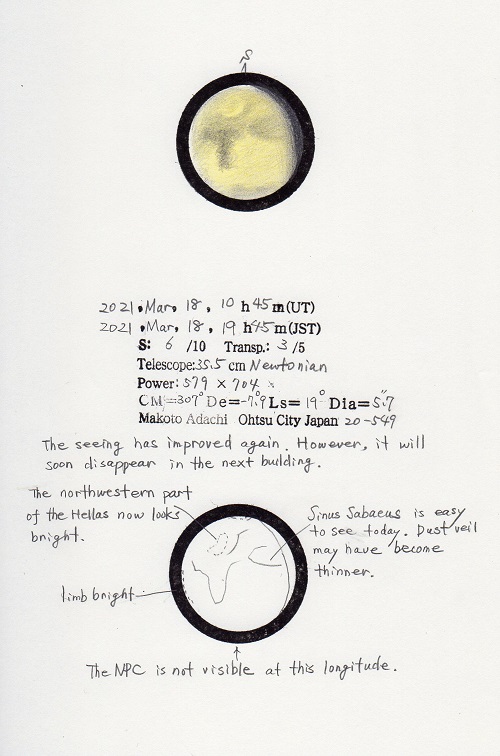 S
2021, Mar, 18, 10 h 45 m (UT)
2021, Mar, 18, 19 h 45 m (JST)
S: 6 /10 Transp.: 3 /5
Telescope: 35.5 cm Newtonian
Power: 579 × 704 ×
CM=307° De=-7.°9 Ls= 19° Dia= 5.″7
Makoto Adachi Ohtsu City Japan 20-549
The seeing has improved again. However, it will
soon disappear in the next building.
The northwestern part
of the Hellas now looks
bright.
Sinus Sabaeus is easy
to see today. Dust veil
may have become
thinner.
limb bright
The NPC is not visible at this longitude.